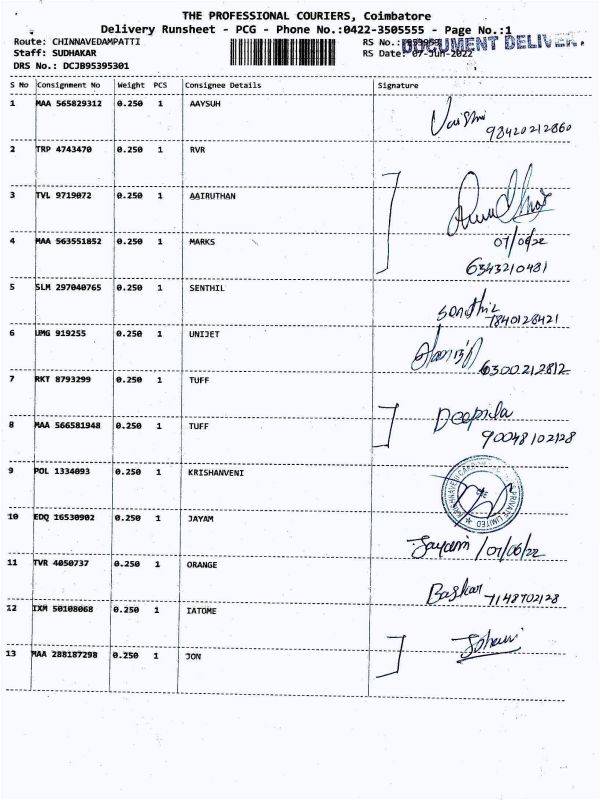 THE PROFESSIONAL COURIERS, Coimbatore
Delivery Runsheet - PCG - Phone No.:0422-3505555 - Page No.:1
Route: CHINNAVEDAMPATTI
RS No.:
DOCUMENT DELIVER
Staff: SUDHAKAR
RS Date: 07-Jun-2022
DRS No.: DCJB95395301
S No Consignment No Weight PCS Consignee Details Signature
1 MAA 565829312 0.250 1 AAYSUH
98420212860
2 TRP 4743470 0.250 1 RVR
3 TVL 9719072 0.250 1 AAIRUTHAN
4 MAA 563551852 0.250 1 MARKS
07/06/22
6343210481
5 SLM 297040765 0.250 1 SENTHIL
Senthil
7840128421
6 UMG 919255 0.250 1 UNIJET
6300212812
7 RKT 8793299 0.250 1 TUFF
Deepika
8 MAA 566581948 0.250 1 TUFF
90048102128
9 POL 1334093 0.250 1 KRISHANVENI
PRIVATE LIMITED
10 EDQ 16530902 0.250 1 JAYAM
Jayam /07/06/22
11 TVR 4050737 0.250 1 ORANGE
Baskar 7148702128
12 IXM 50108068 0.250 1 IATOME
13 MAA 288187298 0.250 1 JON